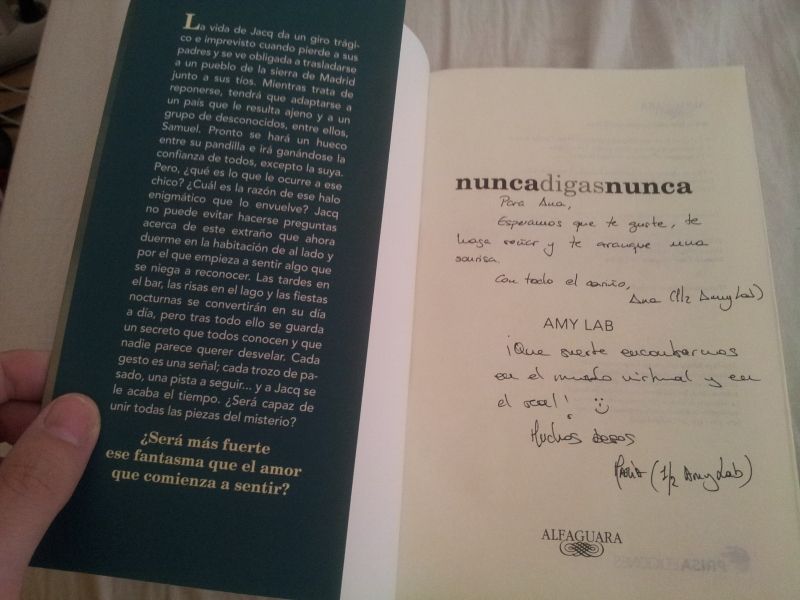 La vida de Jacq da un giro trági-
co e imprevisto cuando pierde a sus
padres y se ve obligada a trasladarse
a un pueblo de la sierra de Madrid
junto a sus tíos. Mientras trata de
reponerse, tendrá que adaptarse a
un país que le resulta ajeno y a un
grupo de desconocidos, entre ellos,
Samuel. Pronto se hará un hueco
entre su pandilla e irá ganándose la
confianza de todos, excepto la suya.
Pero, ¿qué es lo que le ocurre a ese
chico? ¿Cuál es la razón de ese halo
enigmático que lo envuelve? Jacq
no puede evitar hacerse preguntas
acerca de este extraño que ahora
duerme en la habitación de al lado y
por el que empieza a sentir algo que
se niega a reconocer. Las tardes en
el bar, las risas en el lago y las fiestas
nocturnas se convertirán en su día
a día, pero tras todo ello se guarda
un secreto que todos conocen y que
nadie parece querer desvelar. Cada
gesto es una señal; cada trozo de pa-
sado, una pista a seguir... y a Jacq se
le acaba el tiempo. ¿Será capaz de
unir todas las piezas del misterio?
¿Será más fuerte
ese fantasma que el amor
que comienza a sentir?
nuncadigasnunca
Para Ana,
Esperamos que te guste, te
haga soñar y te arranque una
sonrisa.
Con todo el cariño,
Ana (1/2 Amy Lab)
AMY LAB
¡Que suerte encontrarnos
en el mundo virtual y en
el real! :)
Muchos besos
María (1/2 Amy Lab)
ALFAGUARA
PRISA EDICIONES